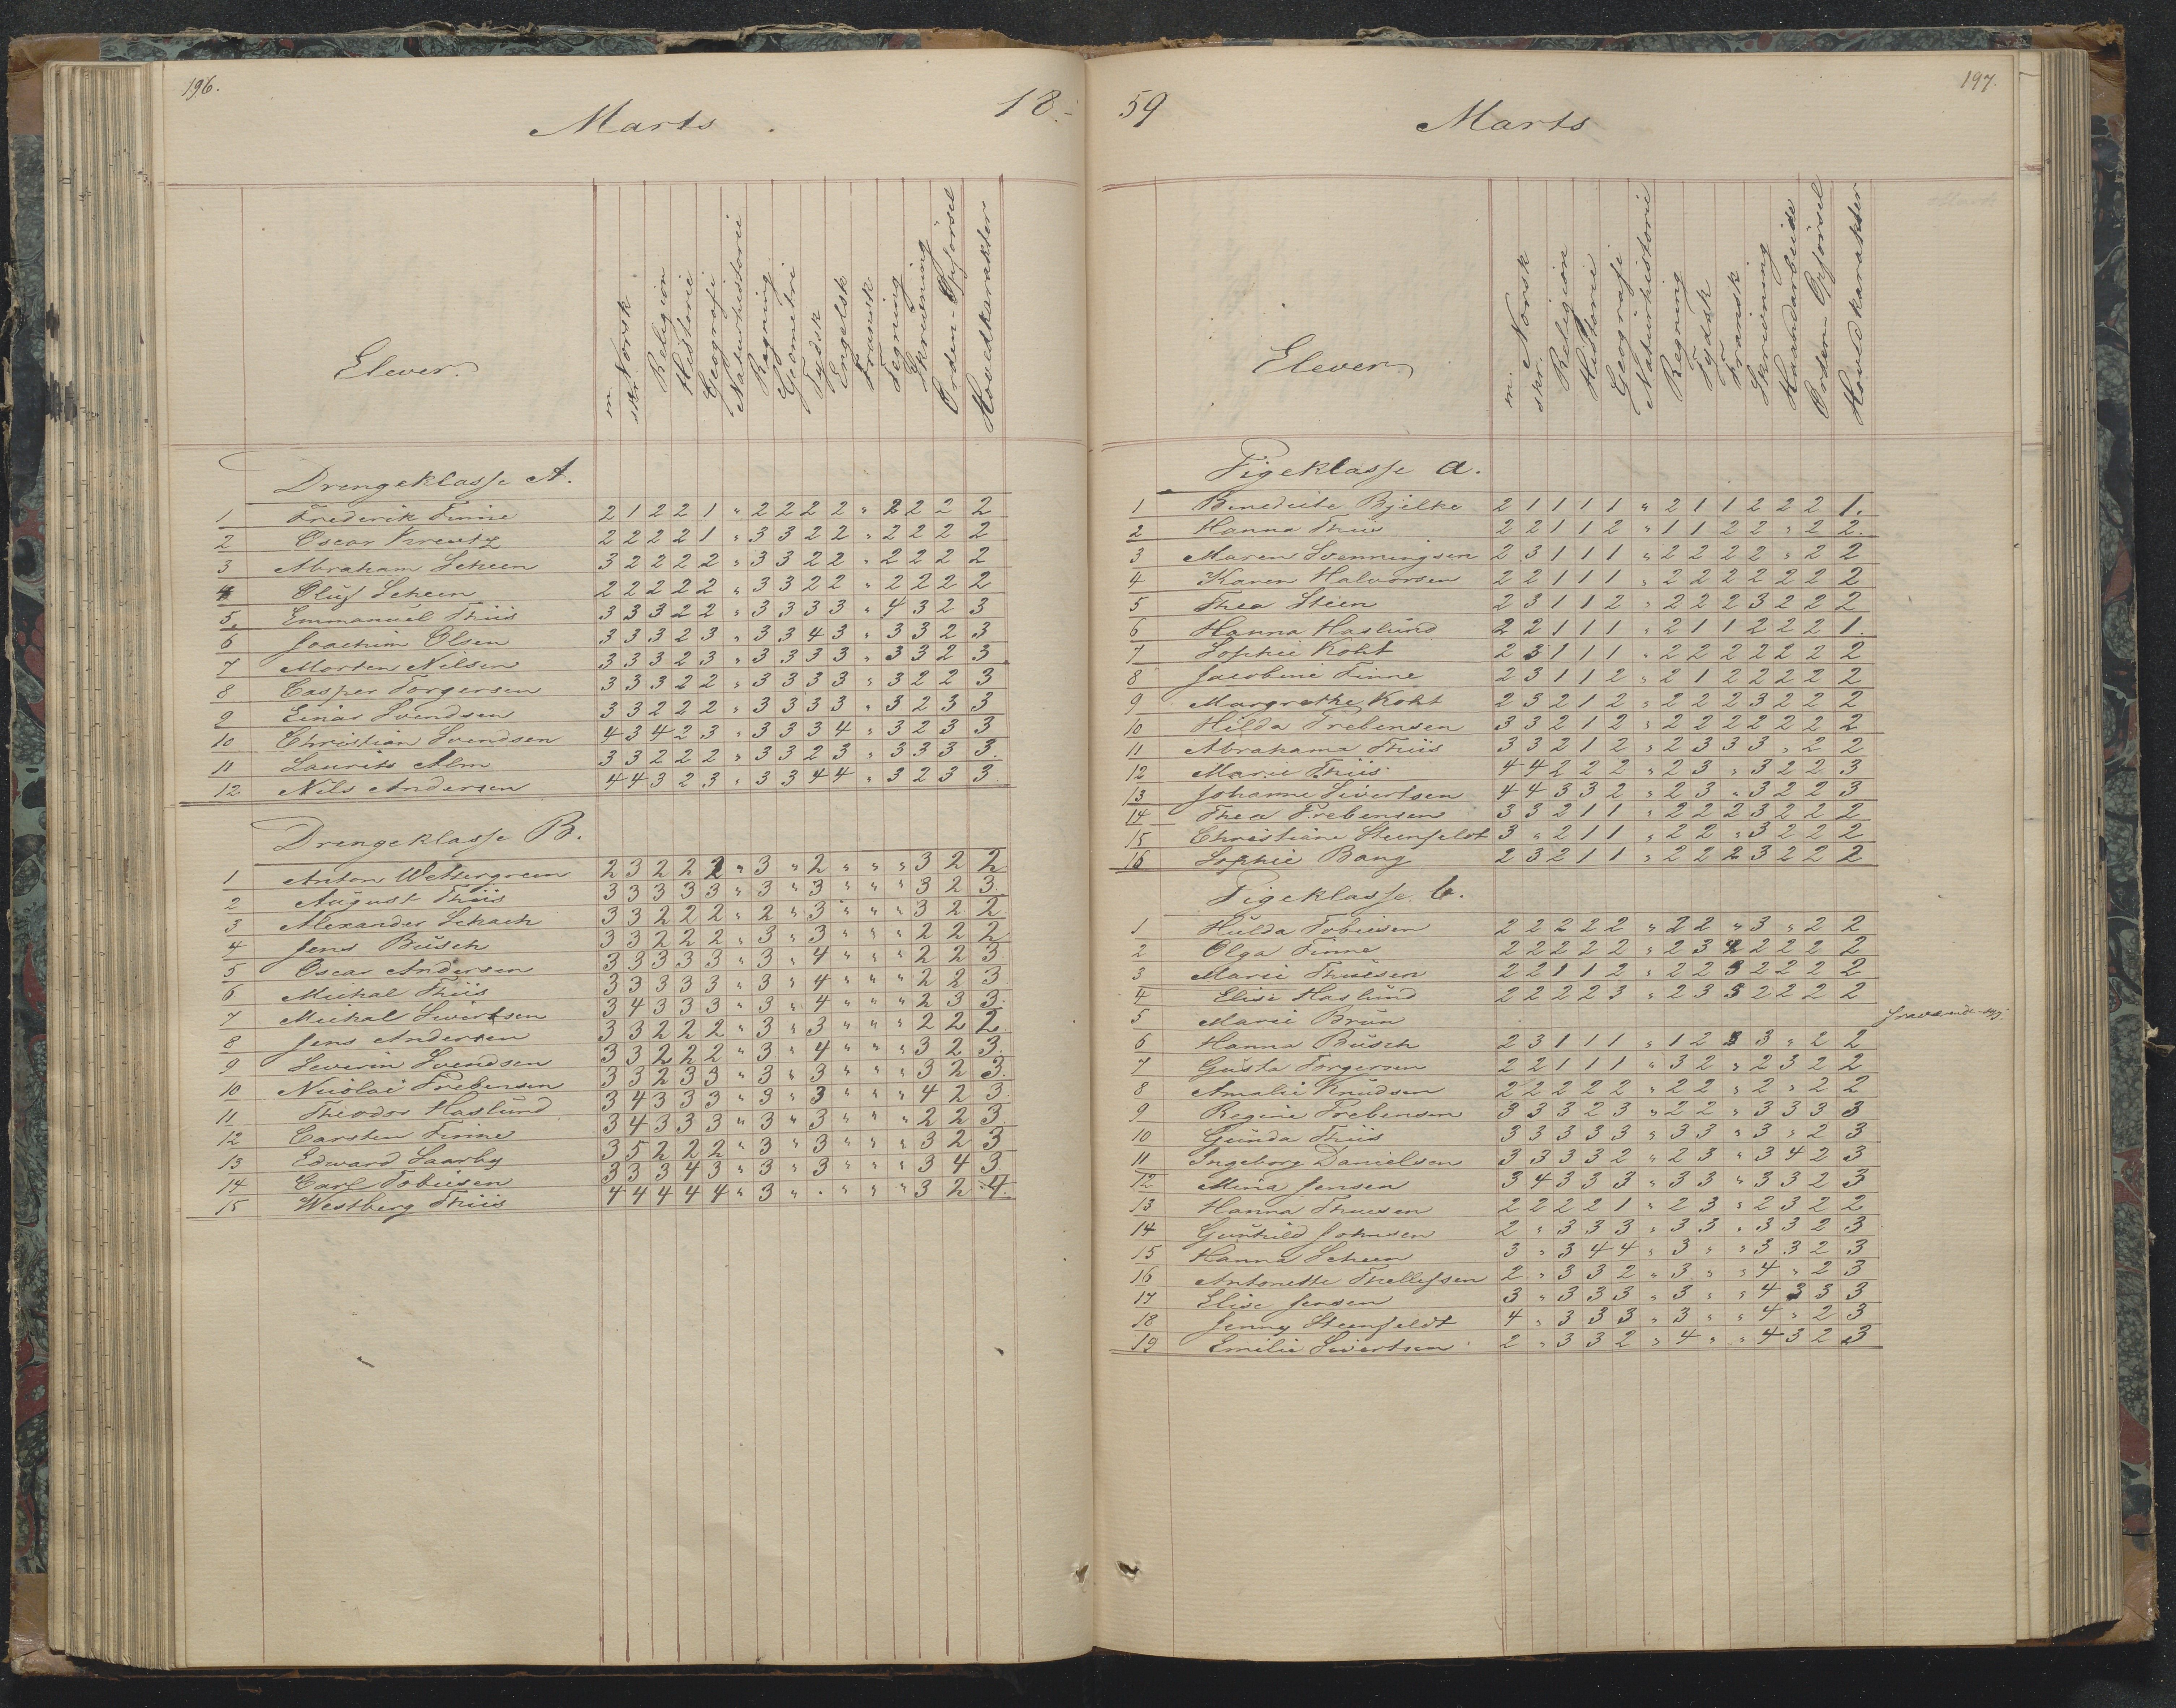 196.
Marts
18
Elever.
m. Norsk
skr. Norsk
Religion
Historie
Geografi
Naturhistorie
Regning
Geometri
Tydsk
Engelsk
Fransk
Tegning
Skrivning
Orden-Opførsel
Hovedkarakter
Drengeklasse A.
1 Frederik Finne 2 1 2 2 1 " 2 2 2 2 " 2 2 2 2
2 Oscar Kreutz 2 2 2 2 1 " 3 3 2 2 " 2 2 2 2
3 Abraham Scheen 3 2 2 2 2 " 3 3 2 2 " 2 2 2 2
4 Oluf Scheen 2 2 2 2 2 " 3 3 2 2 " 2 2 2 2
5. Emmanuel Thiis 3 3 3 2 2 " 3 3 3 3 " 4 3 2 3
6 Joachim Olsen 3 3 3 2 3 " 3 3 4 3 " 3 3 2 3
7 Morten Nilsen 3 3 3 2 3 " 3 3 3 3 " 3 3 2 3
8 Casper Torgersen 3 3 3 2 2 " 3 3 3 3 " 3 2 2 3
9 Einar Svendsen 3 3 2 2 2 " 3 3 3 3 " 3 2 3 3
10 Christian Svendsen 4 3 4 2 3 " 3 3 3 4 " 3 2 3 3
11 Laurits Alm 3 3 2 2 2 " 3 3 2 3 " 3 3 3 3.
12 Nils Andersen 4 4 3 2 3 " 3 3 4 4 " 3 2 3 3
Drengeklasse B.
1 Anton Wettergreen 2 3 2 2 2 " 3 " 2 " " " 3 2 2
2 August Thiis 3 3 3 3 3 " 3 " 3 " " " 3 2 3.
3 Alexander Schach 3 3 2 2 2 " 2 " 3 " " " 3 2 2
4 Jens Busch 3 3 2 2 2 " 3 " 3 " " " 2 2 2
5 Oscar Andersen 3 3 3 3 3 " 3 " 4 " " " 2 2 3
6 Mickal Thiis 3 3 3 3 3 " 3 " 4 " " " 2 2 3
7 Mickal Sivertsen 3 4 3 3 3 " 3 " 4 " " " 2 3 3.
8 Jens Andersen 3 3 2 2 2 " 3 " 3 " " " 2 2 2
9 Severin Svendsen 3 3 2 2 2 " 3 " 4 " " " 3 2 3.
10 Nicolai Prebensen 3 3 2 3 3 " 3 " 3 " " " 3 2 3.
11 Theodor Haslund 3 4 3 3 3 " 3 " 3 " " " 4 2 3
12 Carsten Finne 3 4 3 3 3 " 3 " 3 " " " 2 2 3
13 Edward Saarby 3 5 2 2 2 " 3 " 3 " " " 3 2 3
14 Carl Tobiesen 3 3 3 4 3 " 3 " 3 " " " 3 4 3
15 Westberg Thiis 4 4 4 4 4 " 3 " " " " " 3 2 4.
59
197.
Marts
Elever
m. Norsk
skr.
Religion
Historie
Geografi
Naturhistorie
Regning
Tydsk
Fransk
Skrivning
Haandarbeide
Orden-Opførsel
Hovedkarakter
Pigeklasse a.
1 Benedicte Bjelke 2 1 1 1 1 " 2 1 1 2 2 2 1.
2 Hanna Thiis 2 2 1 1 2 " 1 1 2 2 " 2 2.
3 Maren Svenningsen 2 3 1 1 1 " 2 2 2 2 " 2 2
4 Karen Halvorsen 2 2 1 1 1 " 2 2 2 2 2 2 2
5 Thea Steen 2 3 1 1 2 " 2 2 2 3 2 2 2
6 Hanna Haslund 2 2 1 1 1 " 2 1 1 2 2 2 1.
7 Sophie Koht 2 3 1 1 1 " 2 2 2 2 2 2 2
8 Jacobine Finne 2 3 1 1 2 " 2 1 2 2 2 2 2
9 Margrethe Koht 2 3 2 1 2 " 2 2 2 3 2 2 2
10 Hilda Prebensen 3 3 2 1 2 " 2 2 2 2 2 2 2
11 Abrahama Thiis 3 3 2 1 2 " 2 3 3 3 " 2 2
12 Marie Thiis 4 4 2 2 2 " 2 3 " 3 2 2 3
13 Johanne Sivertsen 4 4 3 3 2 " 2 3 " 3 2 2 3
14 Thea Prebensen 3 3 2 1 1 " 2 2 2 3 2 2 2
15 Christiane Steenfeldt 3 " 2 1 1 " 2 2 " 3 2 2 2
16 Sophie Bang 2 3 2 1 1 " 2 2 2 3 2 2 2
Pigeklasse b.
1 Hulda Tobiesen 2 2 2 2 2 " 2 2 " 3 " 2 2
2 Olga Finne 2 2 2 2 2 " 2 3 2 2 2 2 2
3 Marie Thuesen 2 2 1 1 2 " 2 2 3 2 2 2 2
4 Elise Haslund 2 2 2 2 3 " 2 3 3 2 2 2 2
5 Marie Brun
6 Hanna Busch 2 3 1 1 1 " 1 2 3 3 " 2 2
7 Gusta Torgersen 2 2 1 1 1 " 3 2 " 2 3 2 2
8 Amalie Knudsen 2 2 2 2 2 " 2 2 " 2 " 2 2
9 Regine Prebensen 3 3 3 2 3 " 2 2 " 3 3 3 3
10 Gunda Thiis 3 3 3 3 3 " 3 3 " 3 " 2 3
11 Ingeborg Danielsen 3 3 3 3 2 " 2 3 " 3 4 2 3
12 Mina Jensen 3 4 3 3 3 " 2 3 " 3 3 2 3
13 Hanna Thuesen 2 2 2 2 1 " 2 3 " 2 3 2 2
14 Gunhild Johnsen 2 " 3 3 3 " 3 3 " 3 3 2 3
15 Hanna Scheen 3 " 3 4 4 " 3 " " 3 3 2 3
16 Antonette Thellefsen 2 " 3 3 2 " 3 " " 4 " 2 3
17 Elise Jensen 3 " 3 3 3 " 3 " " 4 3 3 3
18 Jenny Steenfeldt 4 " 3 3 3 " 3 " " 4 " 2 3
19 Emilie Sivertsen 2 " 3 3 2 " 4 " " 4 3 2 3